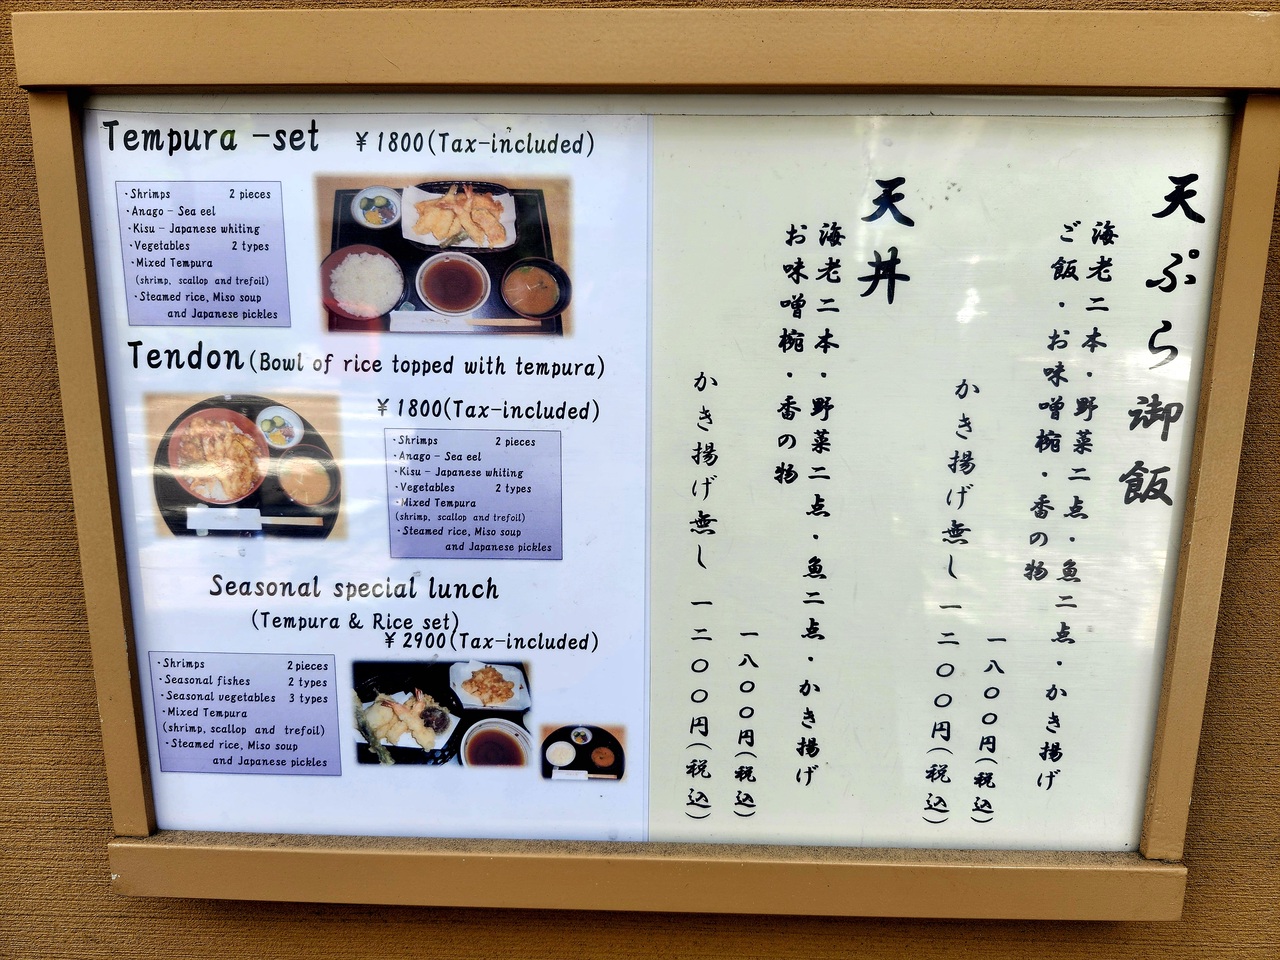 Tempura -set ¥1800(Tax-included)
・Shrimps 2 pieces
・Anago - Sea eel
・Kisu - Japanese whiting
・Vegetables 2 types
・Mixed Tempura
(shrimp, scallop and trefoil)
・Steamed rice, Miso soup
and Japanese pickles
Tendon(Bowl of rice topped with tempura)
¥1800(Tax-included)
・Shrimps 2 pieces
・Anago - Sea eel
・Kisu - Japanese whiting
・Vegetables 2 types
・Mixed Tempura
(shrimp, scallop and trefoil)
・Steamed rice, Miso soup
and Japanese pickles
Seasonal special lunch
(Tempura & Rice set)
¥2900(Tax-included)
・Shrimps 2pieces
・Seasonal fishes 2 types
・Seasonal vegetables 3 types
・Mixed Tempura
(shrimp, scallop and trefoil)
・Steamed rice, Miso soup
and Japanese pickles
天ぷら御飯
海老二本・野菜二点・魚二点・かき揚げ
ご飯・お味噌椀・香の物
一八〇〇円(税込)
かき揚げ無し 一二〇〇円(税込)
天丼
海老二本・野菜二点・魚二点・かき揚げ
お味噌椀・香の物
一八〇〇円(税込)
かき揚げ無し 一二〇〇円(税込)